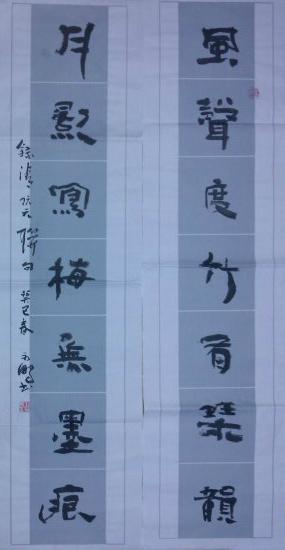 風聲度竹有琹韻
月影寫梅無墨痕
錄清阮元聯句 癸巳春